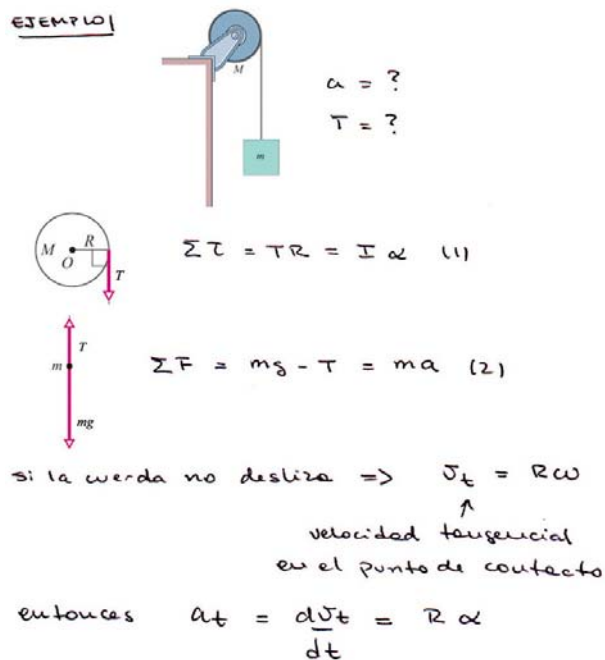 EJEMPLO1
M
m
a = ?
T = ?
M R
O
T
Στ = TR = I α (1)
T
m
mg
ΣF = mg - T = ma (2)
si la cuerda no desliza => v_t = Rω
↑
velocidad tangencial
en el punto de contacto
entonces a_t = dv_t/dt = R α